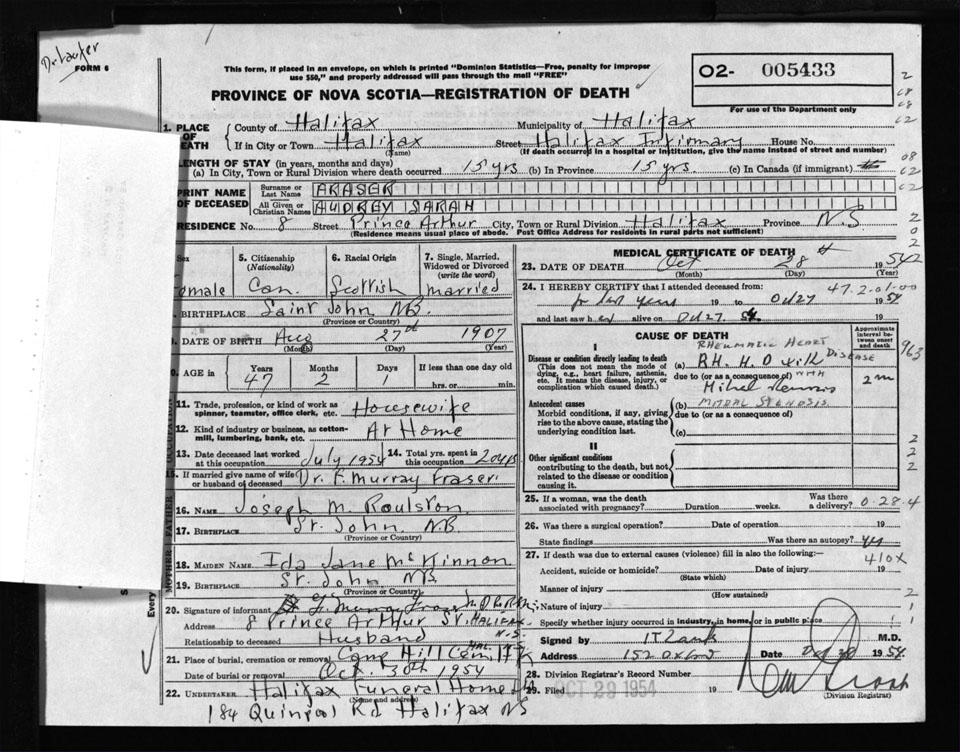 FORM 6
This form, if placed in an envelope, on which is printed "Dominion Statistics—Free, penalty for improper
use $50," and properly addressed will pass through the mail "FREE"
O2- 005433
For use of the Department only
PROVINCE OF NOVA SCOTIA—REGISTRATION OF DEATH
1. PLACE OF DEATH County of Halifax Municipality of Halifax
If in City or Town Halifax Street Halifax Infirmary House No.
(Name) (If death occurred in a hospital or institution, give the name instead of street and number)
LENGTH OF STAY (in years, months and days)
(a) In City, Town or Rural Division where death occurred 15 yrs (b) In Province 15 yrs. (c) In Canada (if immigrant)
PRINT NAME OF DECEASED Surname or Last Name FRASER
All Given or Christian Names AUDREY SARAH
RESIDENCE No. 8 Street Prince Arthur City, Town or Rural Division Halifax Province N.S.
(Residence means usual place of abode. Post Office Address for residents in rural parts not sufficient)
Sex 5. Citizenship (Nationality) 6. Racial Origin 7. Single, Married, Widowed or Divorced (write the word)
emale Can. Scottish married
BIRTHPLACE Saint John NB.
(Province or Country)
DATE OF BIRTH Aug 27th 1907
(Month) (Day) (Year)
AGE in Years Months Days If less than one day old
47 2 1 hrs. or min.
11. Trade, profession, or kind of work as spinner, teamster, office clerk, etc. Housewife
12. Kind of industry or business, as cotton-mill, lumbering, bank, etc. At Home
13. Date deceased last worked at this occupation July 1954 14. Total yrs. spent in this occupation 20 yrs
If married give name of wife or husband of deceased Dr. F. Murray Fraser
16. NAME Joseph M. Roulston
17. BIRTHPLACE St. John N.B.
(Province or Country)
18. MAIDEN NAME Ida Jane McKinnon
19. BIRTHPLACE St. John NB.
(Province or Country)
20. Signature of informant F. Murray Fraser
Address 8 Prince Arthur St. HALIFAX N.S.
Relationship to deceased Husband
21. Place of burial, cremation or removal Camp Hill Cem. Hfx
Date of burial or removal Oct. 30th 1954
22. UNDERTAKER Halifax Funeral Home
(Name and address)
184 Quinpool Rd Halifax NS
MEDICAL CERTIFICATE OF DEATH
23. DATE OF DEATH Oct 28th 1954
(Month) (Day) (Year)
24. I HEREBY CERTIFY that I attended deceased from: 47-2-01-00
for last years 19 to Oct 27 1954
and last saw her alive on Oct 27. 54
CAUSE OF DEATH
Approximate interval between onset and death
I
RHEUMATIC HEART DISEASE
Disease or condition directly leading to death (a) R.H.H.D with
(This does not mean the mode of dying, e.g., heart failure, asthenia, etc. It means the disease, injury, or complication which caused death.)
due to (or as a consequence of) WITH
Mitral Stenosis 2 m
Antecedent causes (b) MITRAL STENOSIS
Morbid conditions, if any, giving rise to the above cause, stating the underlying condition last.
due to (or as a consequence of)
(c)
II
Other significant conditions
contributing to the death, but not related to the disease or condition causing it.
963
25. If a woman, was the death associated with pregnancy? Duration weeks. Was there a delivery? 0-28-4
26. Was there a surgical operation? Date of operation 19
State findings Was there an autopsy? yes
27. If death was due to external causes (violence) fill in also the following:— 410X
Accident, suicide or homicide? Date of injury 19
(State which)
Manner of injury
(How sustained)
Nature of injury
Specify whether injury occurred in industry, in home, or in public place
Signed by M.D.
Address 152 Oxford Date Oct 1954
28. Division Registrar's Record Number
29. Filed OCT 29 1954 19
(Division Registrar)